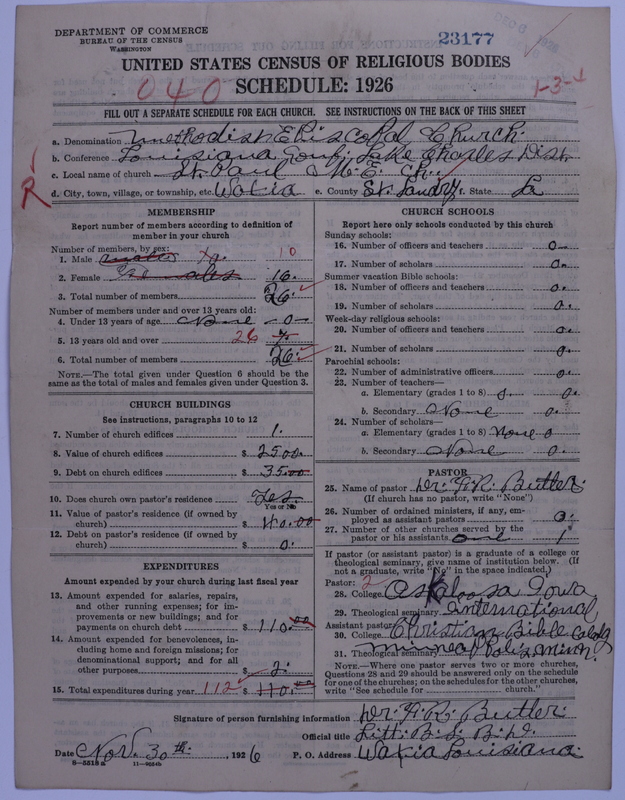 DEPARTMENT OF COMMERCE
BUREAU OF THE CENSUS
WASHINGTON
23177
UNITED STATES CENSUS OF RELIGIOUS BODIES
SCHEDULE: 1926
040
1-3-4
FILL OUT A SEPARATE SCHEDULE FOR EACH CHURCH. SEE INSTRUCTIONS ON THE BACK OF THIS SHEET
R
a. Denomination Methodist Episcopal Church.
b. Conference Louisiana Conf. Lake Charles Dist.
c. Local name of church St. Paul M. E. Ch.
d. City, town, village, or township, etc. Waxia e. County St. Landry f. State La
MEMBERSHIP
Report number of members according to definition of member in your church
Number of members, by sex:
1. Male 10
2. Female 16.
3. Total number of members 26.
Number of members under and over 13 years old:
4. Under 13 years of age None -0-
5. 13 years old and over 26
6. Total number of members 26.
NOTE.—The total given under Question 6 should be the same as the total of males and females given under Question 3.
CHURCH BUILDINGS
See instructions, paragraphs 10 to 12
7. Number of church edifices 1.
8. Value of church edifices $ 2500.
9. Debt on church edifices $ 35.00
10. Does church own pastor's residence Yes.
Yes or No
11. Value of pastor's residence (if owned by church) $ 40.00
12. Debt on pastor's residence (if owned by church) $ 0.
EXPENDITURES
Amount expended by your church during last fiscal year
13. Amount expended for salaries, repairs, and other running expenses; for improvements or new buildings; and for payments on church debt $ 110.00
14. Amount expended for benevolences, including home and foreign missions; for denominational support; and for all other purposes $ 2.
15. Total expenditures during year 112 $ 110.00
CHURCH SCHOOLS
Report here only schools conducted by this church
Sunday schools:
16. Number of officers and teachers 0-
17. Number of scholars 0.
Summer vacation Bible schools:
18. Number of officers and teachers 0.
19. Number of scholars 0.
Week-day religious schools:
20. Number of officers and teachers 0.
21. Number of scholars 0.
Parochial schools:
22. Number of administrative officers 0.
23. Number of teachers—
a. Elementary (grades 1 to 8) 0. 0.
b. Secondary None 0.
24. Number of scholars—
a. Elementary (grades 1 to 8) None 0
b. Secondary None 0.
PASTOR
25. Name of pastor Dr. F. R. Butler.
(If church has no pastor, write "None")
26. Number of ordained ministers, if any, employed as assistant pastors 0.
27. Number of other churches served by the pastor or his assistants one 1
If pastor (or assistant pastor) is a graduate of a college or theological seminary, give name of institution below. (If not a graduate, write "No" in the space indicated.)
Pastor: 2
28. College Oskaloosa, Iowa
29. Theological seminary International
Assistant pastor:
30. College Christian Bible Colledg
31. Theological seminary Minneapolis, Minn.
NOTE.—Where one pastor serves two or more churches, Questions 28 and 29 should be answered only on the schedule for one of the churches; on the schedules for the other churches, write "See schedule for church."
Signature of person furnishing information Dr. F. R. Butler
Official title Litt. B. L. B. D.
Date Nov. 30th., 1926 P. O. Address Waxia Louisiana.
8-5518a 11-9654b